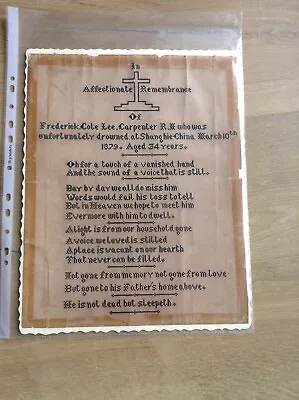 In
Affectionate Remembrance
Of
Frederick. Cote Lee. Carpenter R.N who was
unfortunately drowned at Shanghie China. March 10th
1879. Aged 34 years.
Oh for a touch of a vanished hand
And the sound of a voice that is still.
Day by day we all do miss him
Words would fail his loss to tell
But in Heaven we hope to meet him
Evermore with him to dwell.
A light is from our household gone
A voice we loved is stilled
A place is vacant on our hearth
That never can be filled.
Not gone from memory not gone from love
But gone to his Father's home above.
He is not dead but sleepeth.